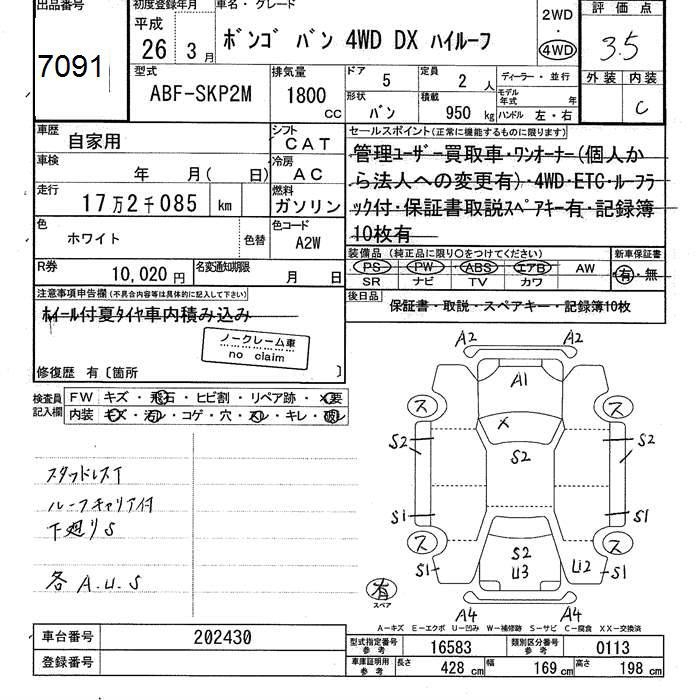 出品番号
7091
初度登録年月
平成
26年 3月
車名・グレード
ボンゴ バン 4WD DX ハイルーフ
2WD
・
4WD
評価点
3.5
外装 内装
C
型式
ABF-SKP2M
排気量
1800 CC
ドア 5
定員 2 人
ディーラー・並行
モデル年式 年
形状 バン
積載 950 kg
ハンドル 左・右
車歴
自家用
シフト
CAT
車検
年 月( 日)
冷房
AC
走行
17万2千085 km
燃料
ガソリン
色
ホワイト
色替
色コード
A2W
R券
10,020円
名変通知期限
月 日
セールスポイント(正常に機能するものに限ります)
管理ユーザー買取車・ワンオーナー(個人か
ら法人への変更有)・4WD・ETC・ルーフラ
ック付・保証書取説スペアキー有・記録簿
10枚有
装備品(純正品に限り○をつけてください)
PS PW ABS エアB AW
SR ナビ TV カワ
新車保証書
有・無
後日品
保証書・取説・スペアキー・記録簿10枚
注意事項申告欄(不具合内容等は具体的に記入して下さい)
ホイール付夏タイヤ車内積み込み
ノークレーム車
no claim
修復歴 有〔箇所 〕
検査員記入欄
FW キズ・飛石・ヒビ割・リペア跡・×要
内装 キズ・汚レ・コゲ・穴・スレ・キレ・破レ
スタッドレスT
ルーフキャリア付
下廻りS
各A.U.S
A2 A2
A1
ス ス
X
S2 S2
S2
S1 S1
ス ス
S2
U3
S1 U2 S1
A4 A4
有
スペア
A-キズ E-エクボ U-凹み W-補修跡 S-サビ C-腐食 XX-交換済
車台番号 202430
登録番号
型式指定番号参考 16583
類別区分番号参考 0113
車庫証明用参考 長さ 428 cm 幅 169 cm 高さ 198 cm